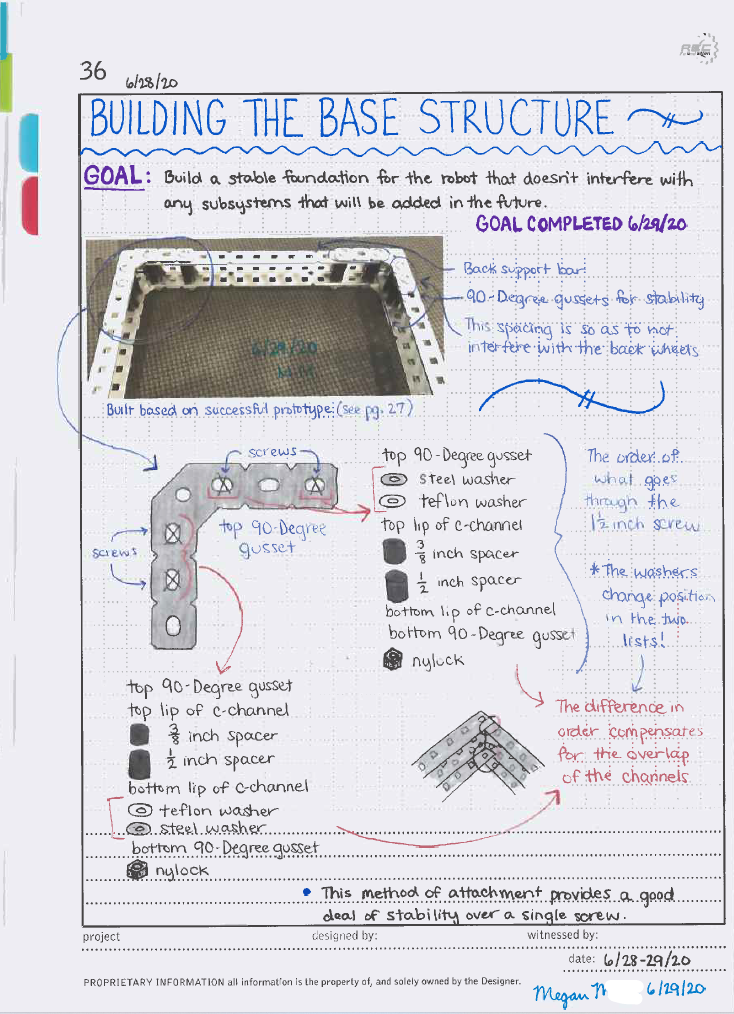 36 6/28/20
BUILDING THE BASE STRUCTURE
GOAL: Build a stable foundation for the robot that doesn't interfere with
any subsystems that will be added in the future.
GOAL COMPLETED 6/29/20
Back support bar
90-Degree gussets for stability
This spacing is so as to not
interfere with the back wheels
6/29/20
Built based on successful prototype: (see pg. 27)
screws
top 90-Degree
gusset
screws
top 90-Degree gusset
steel washer
teflon washer
top lip of c-channel
3/8 inch spacer
1/2 inch spacer
bottom lip of c-channel
bottom 90-Degree gusset
nylock
The order of
what goes
through the
1 1/2 inch screw
*The washers
change position
in the two
lists!
top 90-Degree gusset
top lip of c-channel
3/8 inch spacer
1/2 inch spacer
bottom lip of c-channel
teflon washer
steel washer
bottom 90-Degree gusset
nylock
The difference in
order compensates
for the overlap
of the channels
• This method of attachment provides a good
deal of stability over a single screw.
project designed by: witnessed by:
date: 6/28-29/20
PROPRIETARY INFORMATION all information is the property of, and solely owned by the Designer.
Megan 6/29/20